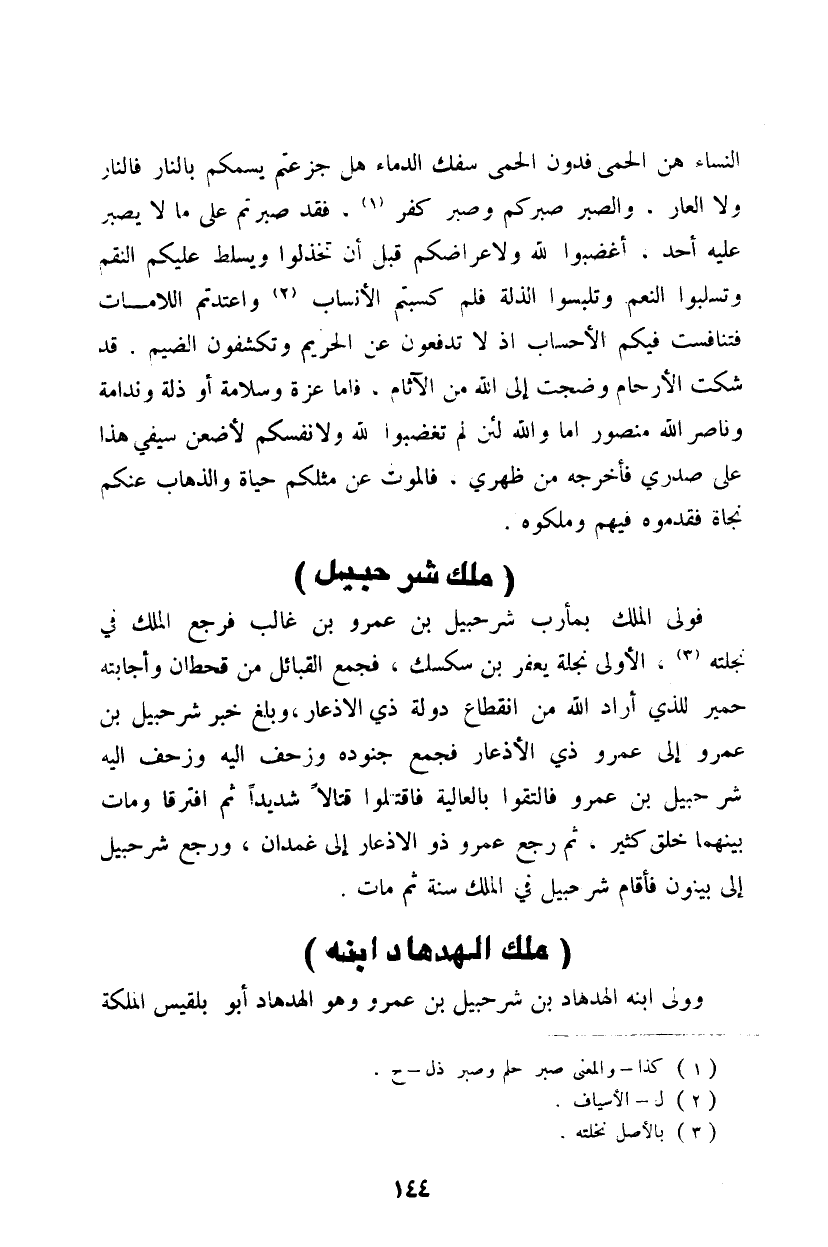 النساء هن الحمى فدون الحمى سفك الدماء هل جزعتم يسمكم بالنار فالنار
ولا العار . والصبر صبركم وصبر كفر (١) . فقد صبرتم على ما لا يصبر
عليه أحد . أغضبوا لله ولاعراضكم قبل أن تخذلوا ويسلط عليكم النقم
وتسلبوا النعم وتلبسوا الذلة فلم كسبتم الأنساب (٢) واعتدتم اللامات
فتنافست فيكم الأحساب اذ لا تدفعون عن الحريم وتكشفون الضيم . قد
شكت الأرحام وضجت إلى الله من الآثام . فاما عزة وسلامة أو ذلة وندامة
وناصر الله منصور اما والله لئن لم تغضبوا لله ولانفسكم لأضعن سيفي هذا
على صدري فأخرجه من ظهري . فالموت عن مثلكم حياة والذهاب عنكم
نجاة فقدموه فيهم وملكوه .
( ملك شرحبيل )
فولى الملك بمأرب شرحبيل بن عمرو بن غالب فرجع الملك في
نجلته (٣) ، الأولى نجلة يعفر بن سكسك ، فجمع القبائل من قحطان وأجابته
حمير للذي أراد الله من انقطاع دولة ذي الاذعار، وبلغ خبر شرحبيل بن
عمرو إلى عمرو ذي الأذعار فجمع جنوده وزحف اليه وزحف اليه
شرحبيل بن عمرو فالتقوا بالعالية فاقتتلوا قتالاً شديداً ثم افترقا ومات
بينهما خلق كثير . ثم رجع عمرو ذو الاذعار إلى غمدان ، ورجع شرحبيل
إلى بينون فأقام شرحبيل في الملك سنة ثم مات .
( ملك الهدهاد ابنه )
وولى ابنه الهدهاد بن شرحبيل بن عمرو وهو الهدهاد أبو بلقيس الملكة
( ١ ) كذا – والمعنى صبر حلم وصبر ذل – ح .
( ٢ ) ل – الأسياف .
( ٣ ) بالأصل نخلته .
١٤٤